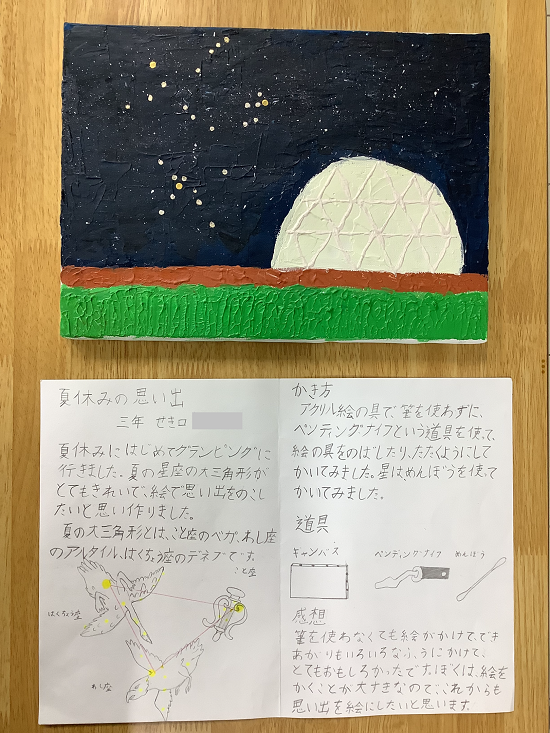 夏休みの思い出
三年 せき口
夏休みにはじめてグランピングに
行きました。夏の星座の大三角形が
とてもきれいで、絵で思い出をのこし
たいと思い作りました。
夏の大三角形とは、こと座のベガ、わし座
のアルタイル、はくちょう座のデネブです。
こと座
はくちょう座
わし座
かき方
アクリル絵の具で、筆を使わずに、
ペンティングナイフという道具を使って、
絵の具をのばしたり、たたくようにして
かいてみました。星はめんぼうを使って
かいてみました。
道具
キャンバス
ペンディングナイフ
めんぼう
感想
筆を使わなくても絵がかけて、でき
あがりもいろいろなふうにかけて、
とてもおもしろかったです。ぼくは、絵を
かくことが大すきなので、これからも
思い出を絵にしたいと思います。